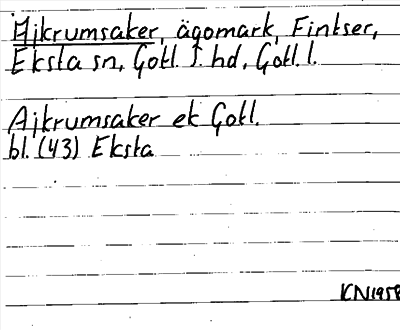 Ajkrumsaker, ägomark, Fintser,
Eksta sn, Gotl. s. hd, Gotl. l.
Ajkrumsaker ek Gotl.
bl. (43) Eksta
KN1958